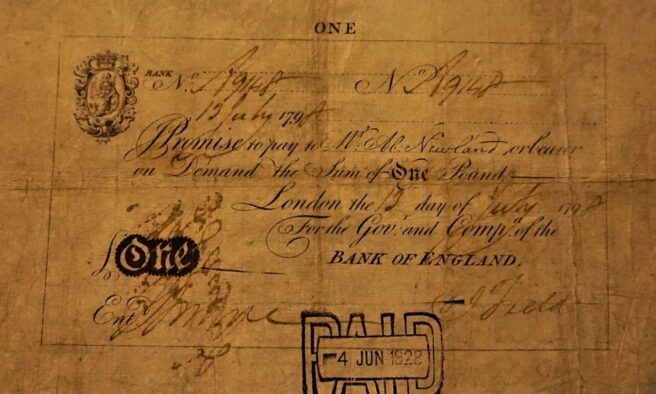 ONE
BANK No. 29148 No. 29148
13 July 1798
I Promise to pay to Mr. A. Newland, or bearer
on Demand the Sum of One Pound
London the 13 day of July 1798
For the Govr. and Compa. of the
BANK OF ENGLAND.
£ One
Entd. J Field
PAID
4 JUN 1928